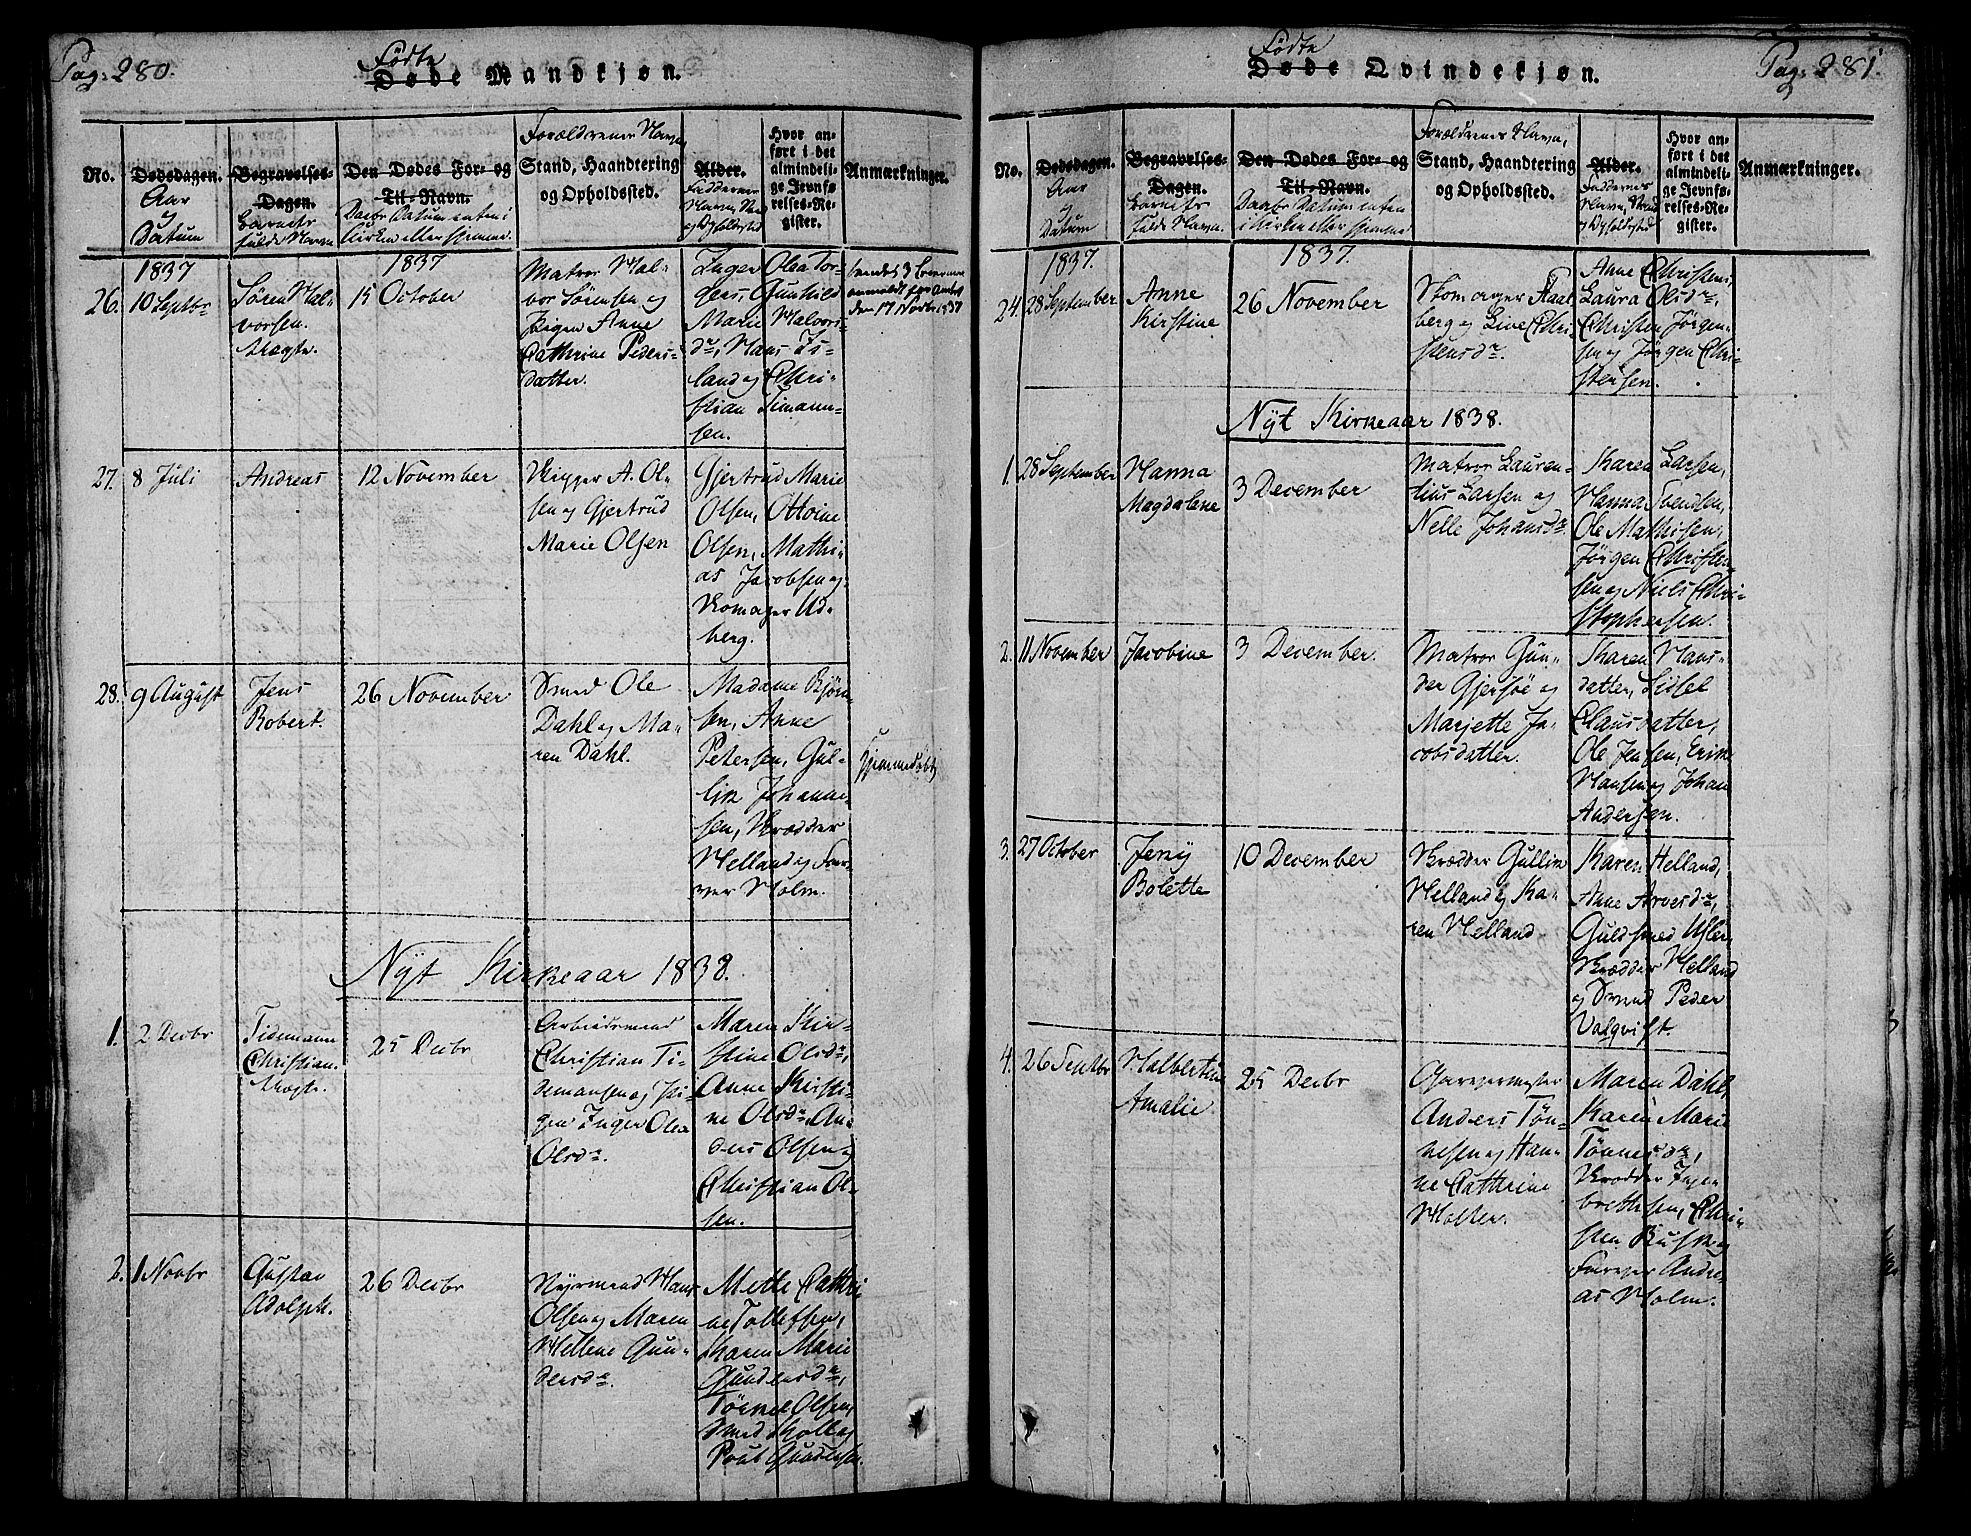 Pag: 280.
Fødte
Døde Mandkjøn.
No.
Dødsdagen.
Aar
og
Datum
Begravelses-
Dagen.
Barnets
fulde Navn.
Den Dødes For- og
Til-Navn.
Daabs Datum enten i
Kirken eller hjemme.
Forældrenes Navn,
Stand, Haandtering
og Opholdssted.
Alder.
Faddernes
Navn, Stand
og Opholdsted
Hvor an-
ført i det
almindeli-
ge Jevnfø-
relses-Re-
gister.
Anmærkninger.
1837
1837
26.
10 Septbr
Søren Hal-
vorsen.
Uægte.
15 October
Matros Hal-
vor Sørensen og
Pigen Anne
Cathrine Peders-
datter.
Inger Olea Tor-
ders, Gunhild
Marie Halvors-
dr, Hans Tf-
land og Chri-
stian Timann-
sen.
27.
8 Juli
Andreas
12 November
Skipper A. Ol-
sen og Gjertrud
Marie Olsen
Gjertrud Marie
Olsen, Ottoine
Olsen, Mathi-
as Jacobsen og
Skomager Ud-
berg.
28.
9 August
Jens
Robert.
26 November
Smed Ole
Dahl og Ma-
ren Dahl.
Madame Bjørn-
sen, Anne
Petersen, Gul-
lik Johanne-
sen, Skrædder
Helland og Far-
ver Holm.
Hjemmedøbt
Nyt Kirkeaar 1838.
1.
2 Decbr
Tidemann
Christian.
Uægte.
25 Decbr
Arbeidsmand
Christian Ti-
demansen og Pi-
gen Inger Olea
Olsdr.
Maren Kir-
stine Olsdr,
Anne Kirsti-
ne Olsdr, An-
ders Olsen og
Christian Ol-
sen.
2.
1 Novbr
Gustav
Adolph.
26 Decbr
Styrmand Hans
Olsen og Maren
Hellene Gun-
dersdr.
Mette Cathri-
ne Tollefsen,
Karen Marie
Gundersdr,
Tønnes Olsen,
Smed Moll og
Poul Gundersen.
Fødte
Døde Qvindekjøn.
Pag: 281.
No.
Dødsdagen.
Aar
og
Datum
Begravelses-
Dagen.
Barnets
fulde Navn.
Den Dødes For- og
Til-Navn.
Daabs Datum enten
i Kirken eller hjemme
Forældrenes Navn,
Stand, Haandtering
og Opholdssted.
Alder.
Faddernes
Navn, Stand
og Opholdsted
Hvor an-
ført i det
almindeli-
ge Jevnfø-
relses-Re-
gister.
Anmærkninger.
1837.
1837.
24.
28 September
Anne
Kirstine
26 November
Skomager Staal-
berg og Live Chri-
stensdr.
Anne Christens,
Laura Olsdr,
Christen Jørgen-
sen og Jørgen Chri-
stensen.
Nyt Kirkeaar 1838.
1.
28 September
Hanna
Magdalene
3 December
Matros Lauren-
tius Larsen og
Nelle Johansdr.
Karen Larsen,
Hanna Svendsen,
Ole Mathisen,
Jørgen Christen-
sen og Niels Chri-
stophersen.
2.
11 November
Jacobine
3 December.
Matros Gun-
der Gjersøe og
Marjette Ja-
cobsdatter.
Karen Hans-
datter, Sidsel
Clausdatter,
Ole Jensen, Erik
Hansen og Johan
Andersen.
3.
27 October
Jeny
Bolette
10 December
Skrædder Gullik
Helland og Ka-
ren Helland
Karen Helland,
Anne Arvesdr,
Guldsmed Ugler,
Skrædder Helland
og Smed Peder
Valqvist.
4.
26 Septbr
Halbertine
Amalie
25 Decbr
Garvermester
Anders Tøn-
nesen og Han-
ne Cathrine
Holter.
Maren Dahl,
Karen Marie
Tønnesdr,
Skrædder Inge-
brethsen, Chri-
sten Busk og
Farver Andre-
as Holm.